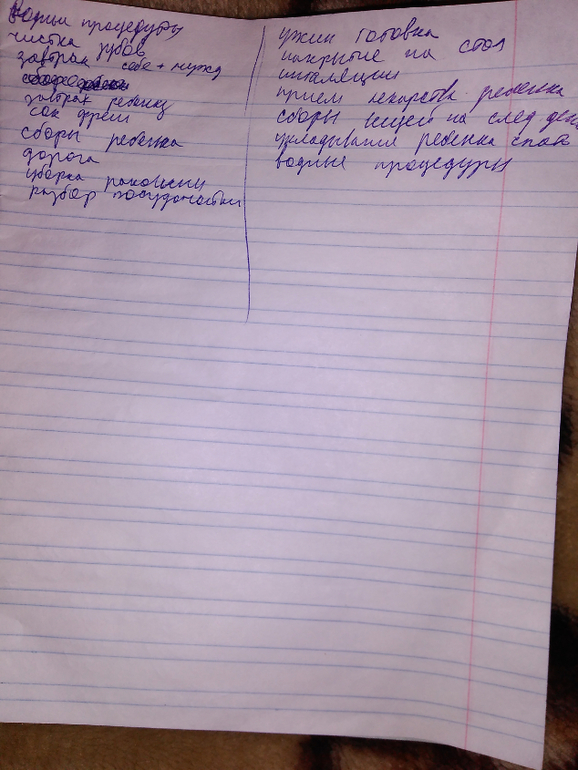 водные процедуры
чистка зубов
завтрак себе + мужу
завтрак ребенку
сок фреш
сборы ребенка
дорога
уборка раковины
разбор посудомойки
ужин готовка
накрытие на стол
ингаляции
прием лекарств ребенка
сборы вещей на след день
укладывание ребенка спать
водные процедуры